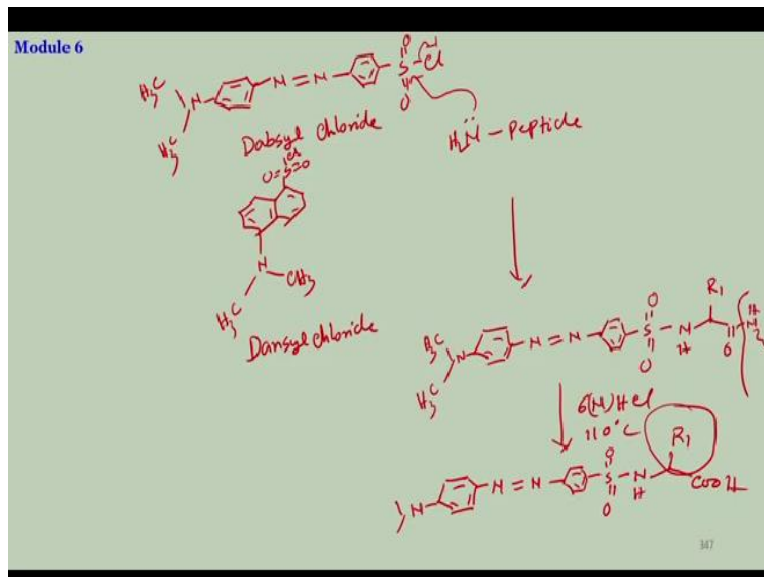 Module 6
H3C
H3C
N
N=N
O
S
Cl
O
Dabsyl Chloride
H2N̈ - Peptide
Cl
O=S=O
N
CH3
H3C
Dansyl chloride
H3C
H3C
N
N=N
O
S
O
N
H
R1
O
H
N
6(M) HCl
110°C
N
N=N
O
S
O
N
H
R1
COOH
347